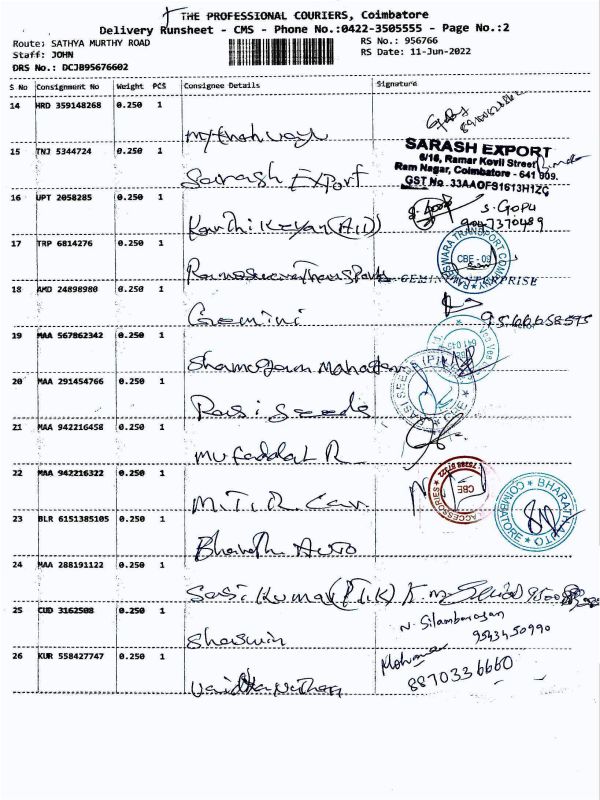 THE PROFESSIONAL COURIERS, Coimbatore
Delivery Runsheet - CMS - Phone No.:0422-3505555 - Page No.:2
Route: SATHYA MURTHY ROAD RS No.: 956766
Staff: JOHN RS Date: 11-Jun-2022
DRS No.: DCJB95676602
S No Consignment No Weight PCS Consignee Details Signature
14 HRD 359148268 0.250 1
15 TNJ 5344724 0.250 1
Sarash Export
SARASH EXPORT
6/16, Ramar Kovil Street
Ram Nagar, Coimbatore - 641 009.
GST No. 33AAOFS1613H1ZG
16 UPT 2058285 0.250 1
S. GOPU
9047370489
17 TRP 6814276 0.250 1
RAMESWARA TRANSPORT COMPANY
CBE - 09
GEMINI ENTERPRISE
18 AMD 24898980 0.250 1
Gemini
19 MAA 567862342 0.250 1
20 MAA 291454766 0.250 1
Rasi Seeds
RASI SEEDS (P)
CBE
21 MAA 942216458 0.250 1
Mufaddal R
22 MAA 942216322 0.250 1
M.T.R. Car
ACCESSORIES
CBE
23 BLR 6151385105 0.250 1
Bharath Auto
BHARATH AUTO
COIMBATORE
24 MAA 288191122 0.250 1
Sasi Kumar (T.K)
25 CUD 3162508 0.250 1
Shaswin
N. Silambarasan
9543450990
26 KUR 558427747 0.250 1
Vaidhyanathan
8870336660